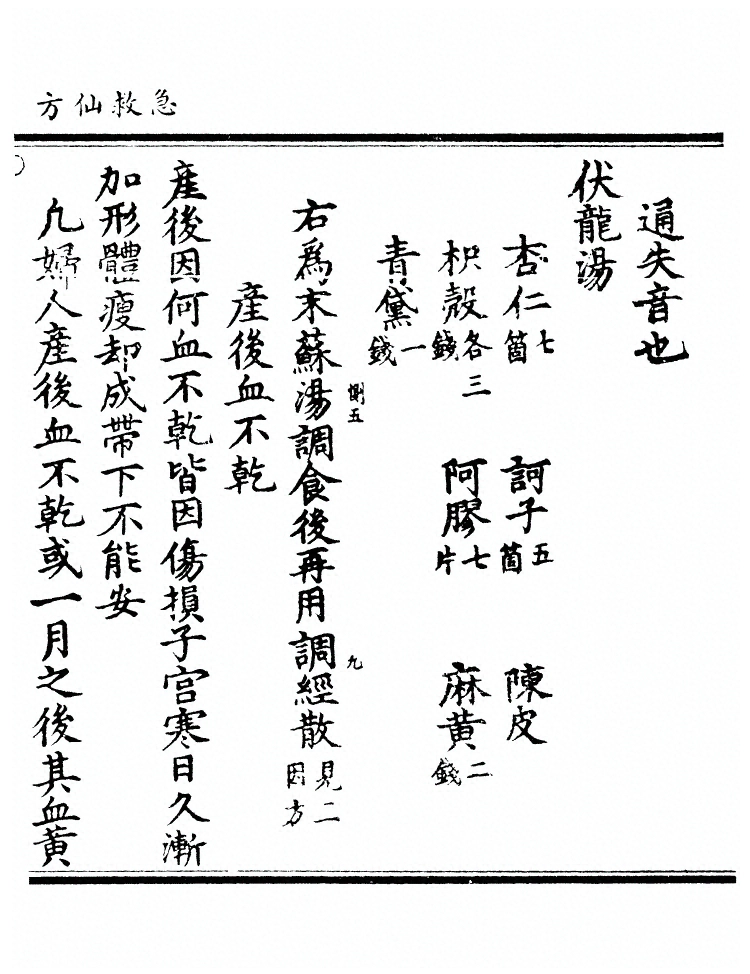 急救仙方
通失音也
伏龍湯
杏仁七箇 訶子五箇 陳皮
枳殼各三錢 阿膠七片 麻黃二錢
青黛一錢
右爲末蘇湯調食後再用調經散見二因方
五
九
産後血不乾
産後因何血不乾皆因傷損子宮寒日久漸
加形體瘦却成帶下不能安
凡婦人産後血不乾或一月之後其血黃